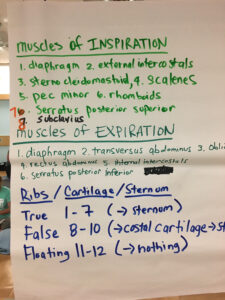 muscles of INSPIRATION
1. diaphragm 2. external intercostals
3. sternocleidomastoid, 4. scalenes
5. pec minor 6. rhomboids
7. Serratus posterior superior
8. subclavius
muscles of EXPIRATION
1. diaphragm 2. transversus abdominus 3. obli
4. rectus abdominus 5. internal intercostals
6. serratus posterior inferior
Ribs / Cartilage / Sternum
True 1-7 (→ sternum)
False 8-10 (→ costal cartilage → st
Floating 11-12 (→ nothing)